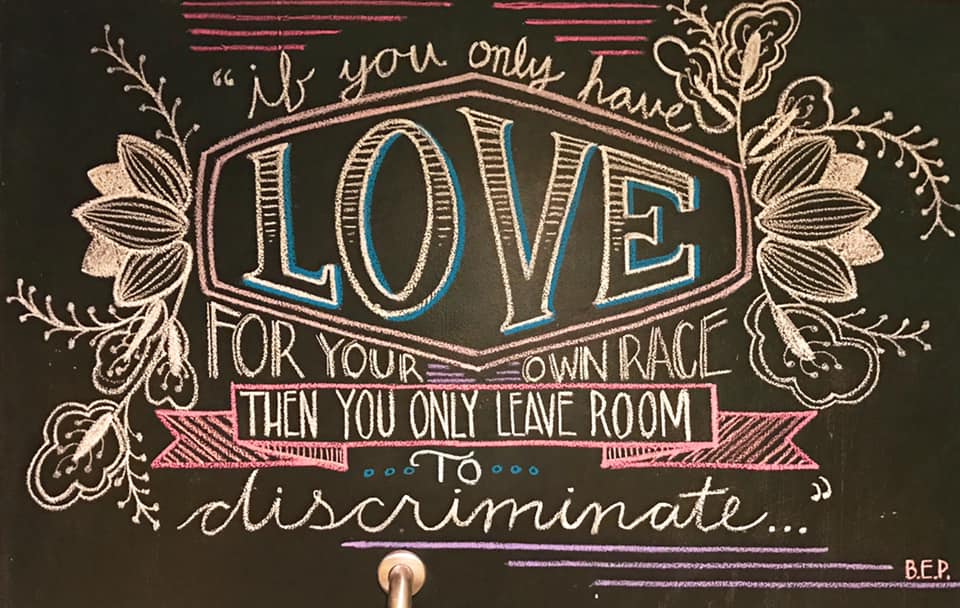 “if you only have
LOVE
FOR YOUR OWN RACE
THEN YOU ONLY LEAVE ROOM
...TO...
discriminate...”
B.E.P.